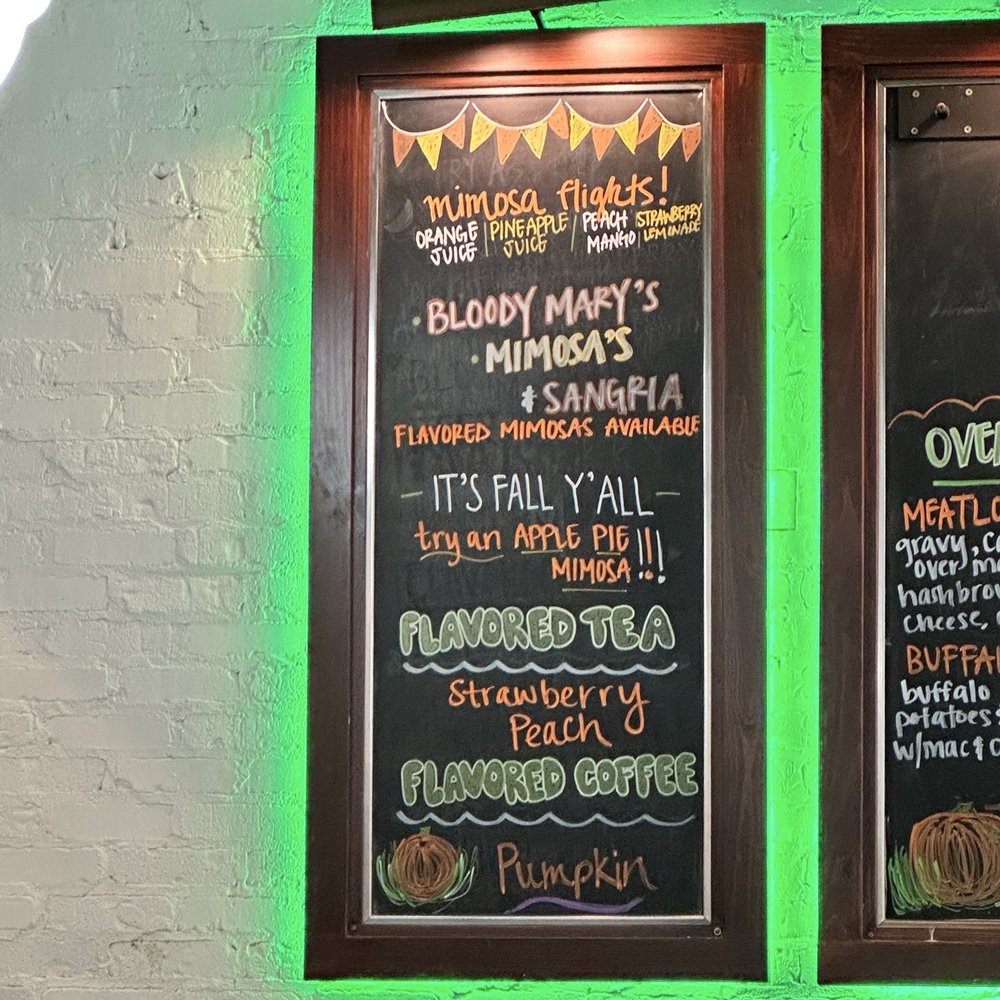 mimosa flights!
ORANGE JUICE | PINEAPPLE JUICE | PEACH MANGO | STRAWBERRY LEMONADE
· BLOODY MARY'S
· MIMOSA'S
& SANGRIA
FLAVORED MIMOSAS AVAILABLE
— IT'S FALL Y'ALL —
try an APPLE PIE
MIMOSA !!!
FLAVORED TEA
Strawberry
Peach
FLAVORED COFFEE
Pumpkin
OVE
MEATLO
gravy, c
over m
hashbro
cheese,
BUFFA
buffalo
potatoes
w/mac &